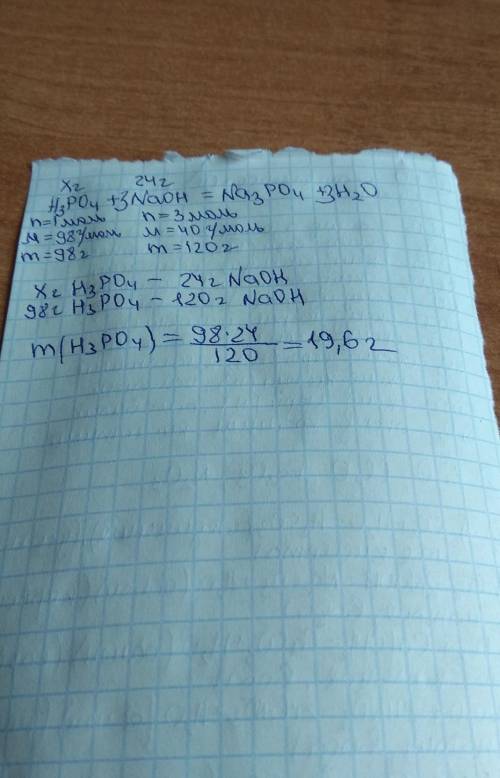 x г 24 г
H₃PO₄ + 3NaOH = Na₃PO₄ + 3H₂O
n = 1 моль n = 3 моль
M = 98 г/моль M = 40 г/моль
m = 98 г m = 120 г
x г H₃PO₄ – 24 г NaOH
98 г H₃PO₄ – 120 г NaOH
m(H₃PO₄) = 98·24/120 = 19,6 г